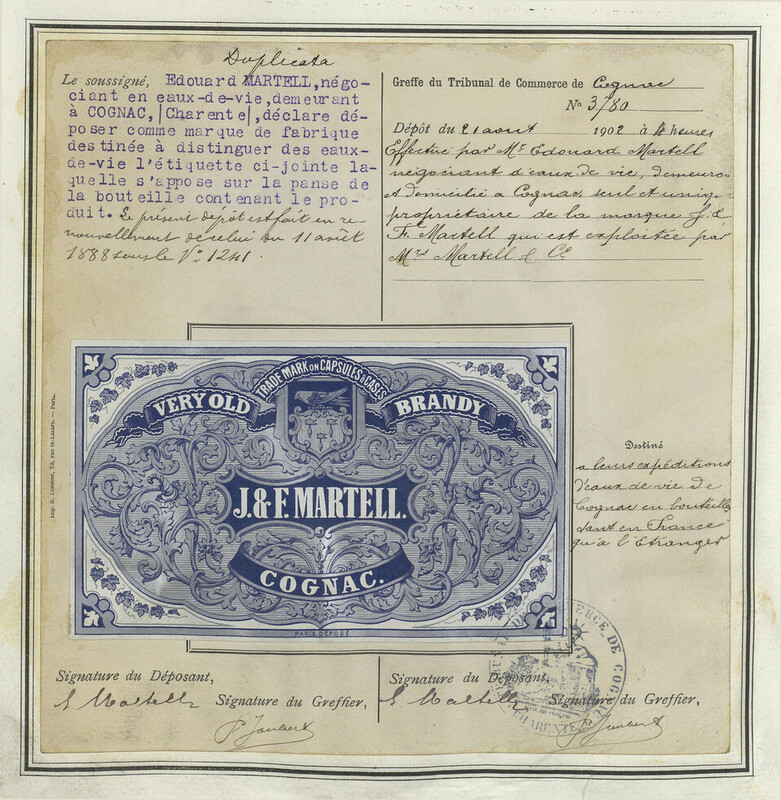 Duplicata
Le soussigné, Edouard MARTELL, négo-
ciant en eaux-de-vie, demeurant
à COGNAC, |Charente|, déclare dé-
poser comme marque de fabrique
destinée à distinguer des eaux-
de-vie l'étiquette ci-jointe la-
quelle s'appose sur la panse de
la bouteille contenant le pro-
duit. Le présent dépôt est fait en re-
nouvellement de celui du 11 août
1888 sous le N° 1241.
Greffe du Tribunal de Commerce de Cognac
N° 3780
Dépôt du 21 août 1902 à 4 heures
Effectué par Mr Edouard Martell
négociant d'eaux de vie, demeurant
et domicilié a Cognac, seul et unique
propriétaire de la marque J. &
F. Martell qui est exploitée par
Mrs Martell & Ce
TRADE MARK ON CAPSULES & CASES
VERY OLD BRANDY
J. & F. MARTELL.
COGNAC.
PARIS, DÉPOSÉ
Paris.
Destiné
a leurs expéditions
d'eaux de vie de
Cognac en bouteilles
tant en France
qu'a l'Etranger
Signature du Déposant,
E Martell
Signature du Greffier,
P Joubert
Signature du Déposant,
E Martell
Signature du Greffier,
P Joubert
COMMERCE DE COGNAC
CHARENTE